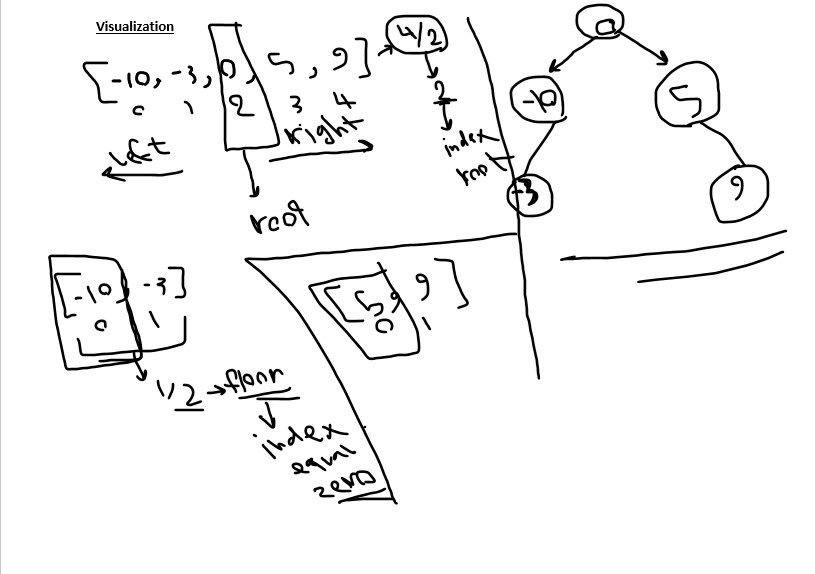 Visualization
[-10, -3, 0, 5, 9] → 4/2
0 1 2 3 4
2
left
right
index
root
root
0
-10
5
-3
9
[-10, -3]
0 1
1/2 → floor
index
equal
zero
[5, 9]
0 1